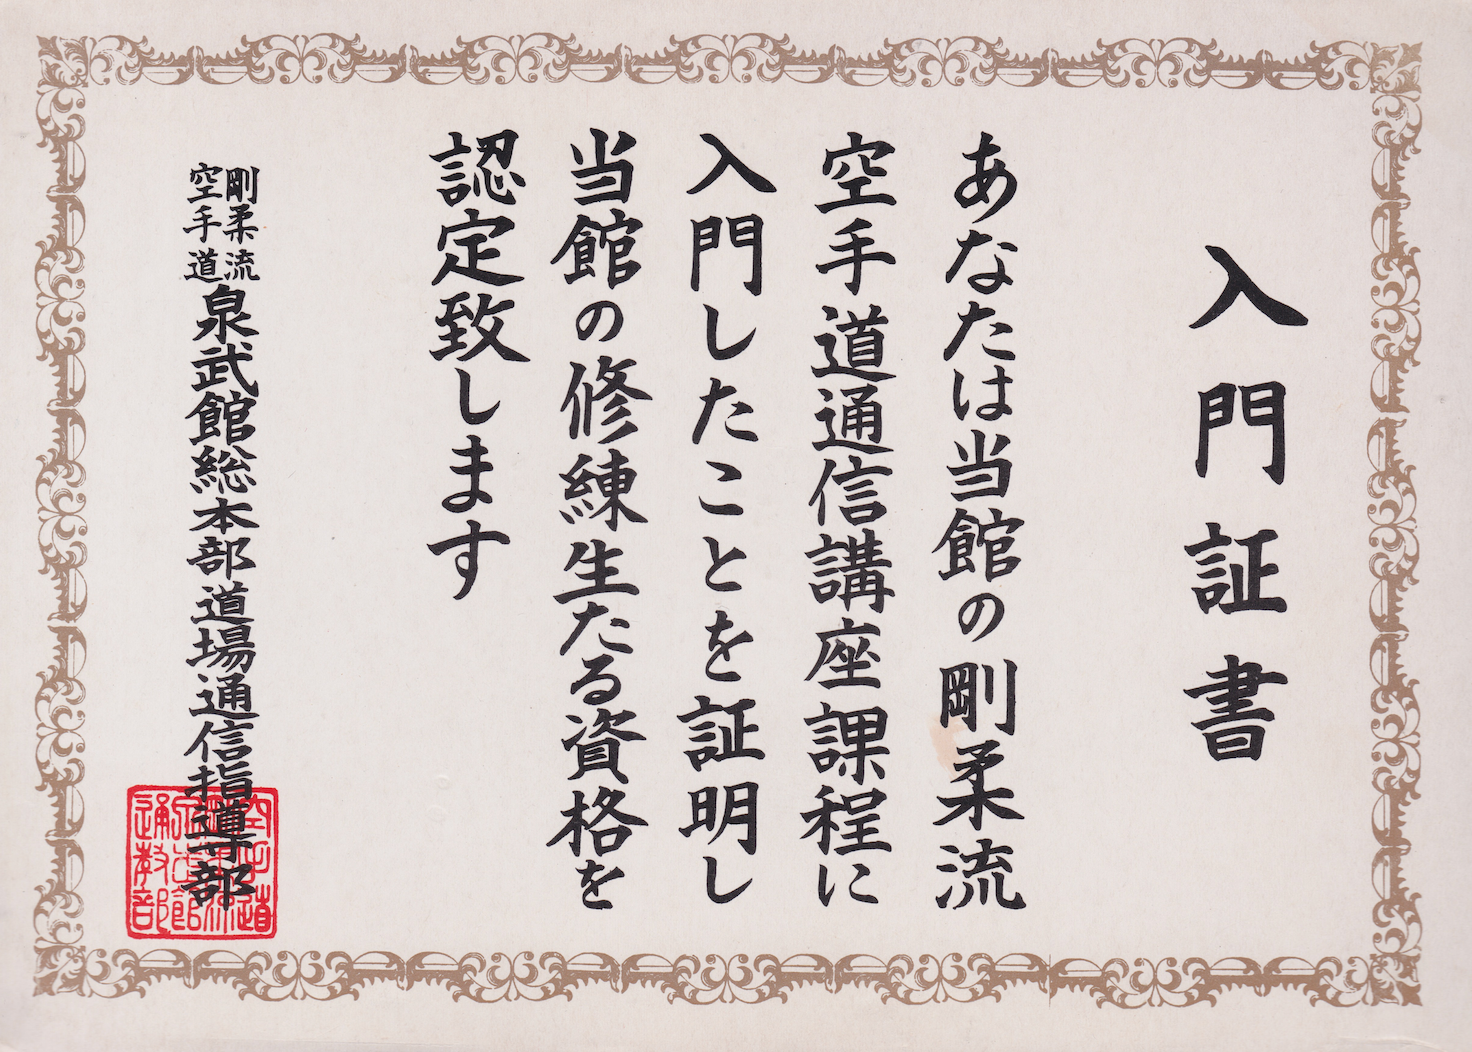 入門証書
あなたは当館の剛柔流
空手道通信講座課程に
入門したことを証明し
当館の修練生たる資格を
認定致します
剛柔流
空手道
泉武館総本部道場通信指導部
空手道
通教部